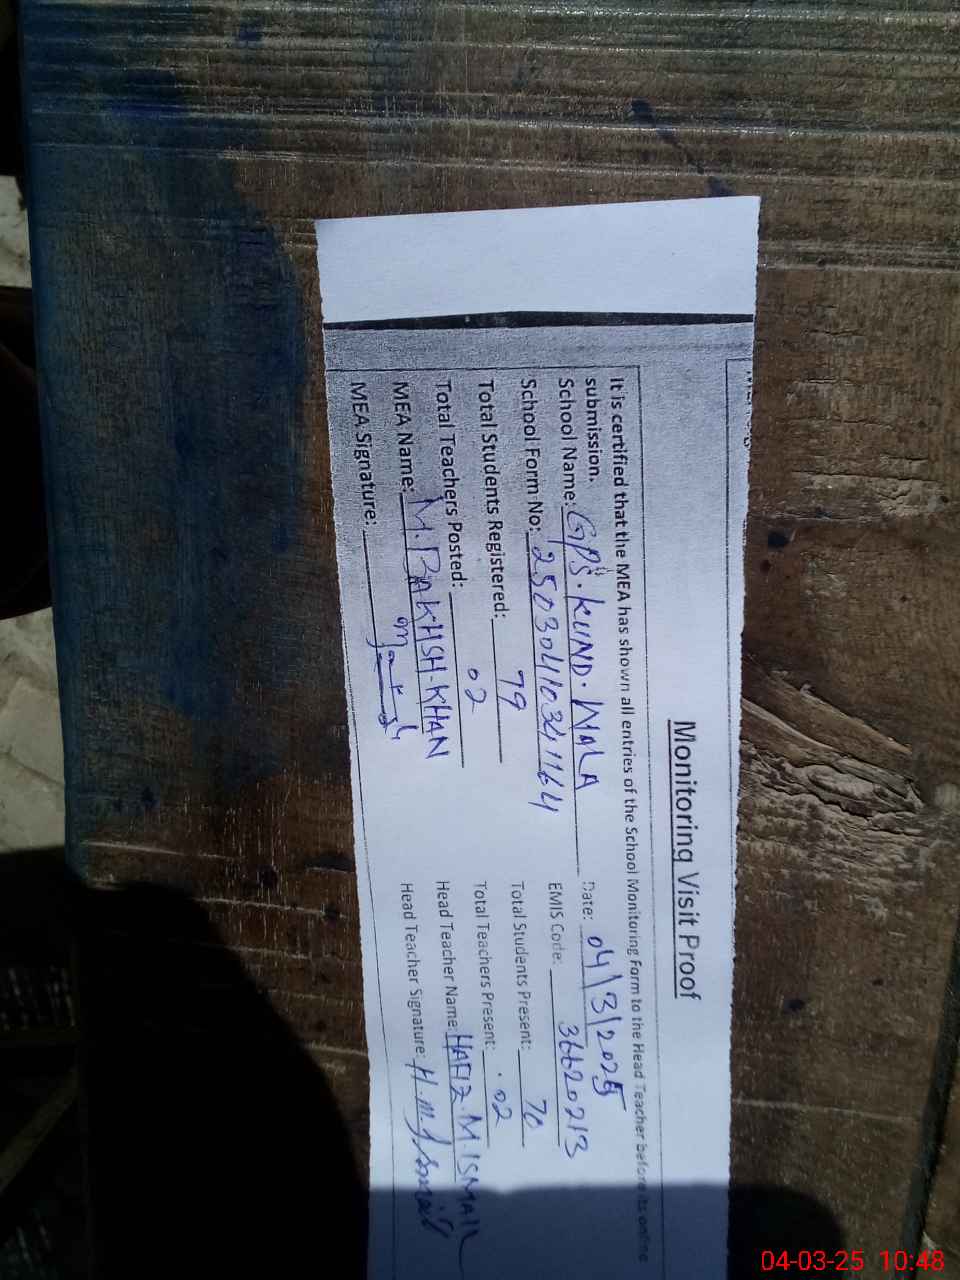 Monitoring Visit Proof
It is certified that the MEA has shown all entries of the School Monitoring Form to the Head Teacher before its online
submission.
School Name: GPS. KUND. WALA Date: 04/3/2025
School Form No: 25030411034 1164 EMIS Code: 36620213
Total Students Registered: 79 Total Students Present: 70
Total Teachers Posted: 02 Total Teachers Present: 02
MEA Name: M. BAKHSH. KHAN Head Teacher Name: HAFIZ. M. ISMAIL
MEA Signature: Head Teacher Signature: H. M. Ismail
04-03-25 10:48